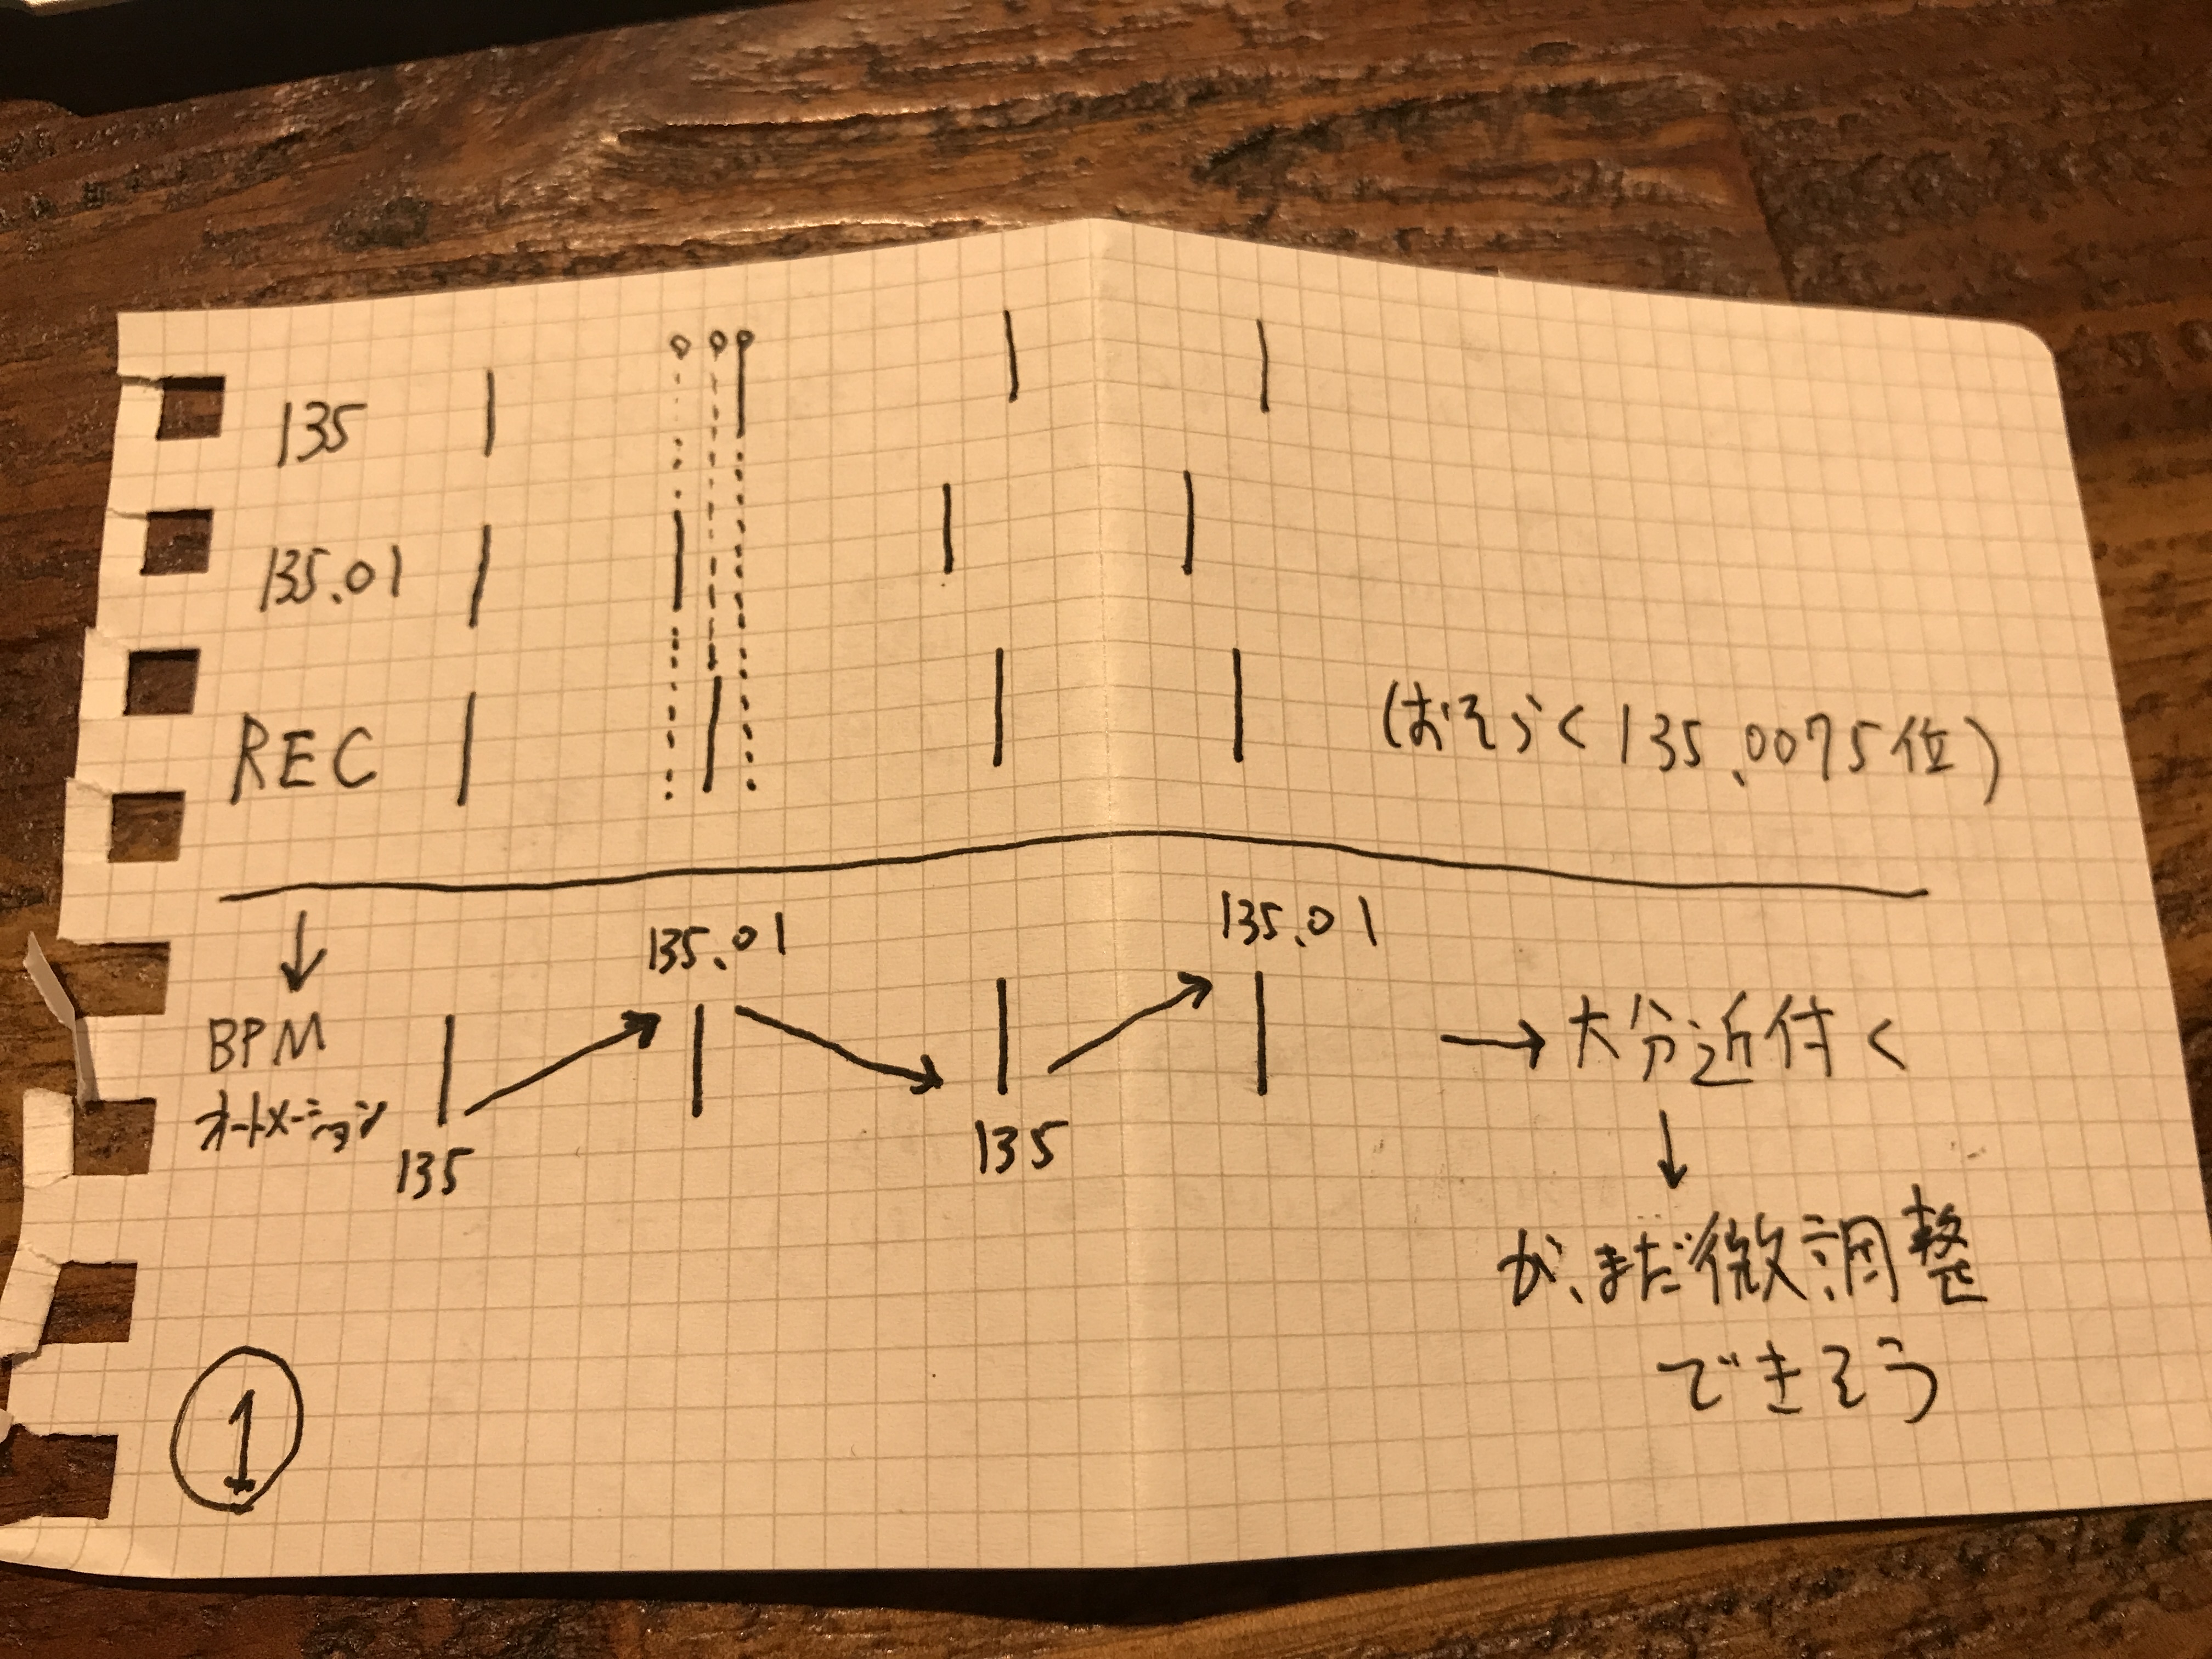 135
135.01
REC
(おそらく135.0075位)
135.01
135.01
BPM
オートメーション
135
135
→大分近付く
が、まだ微調整
できそう
1